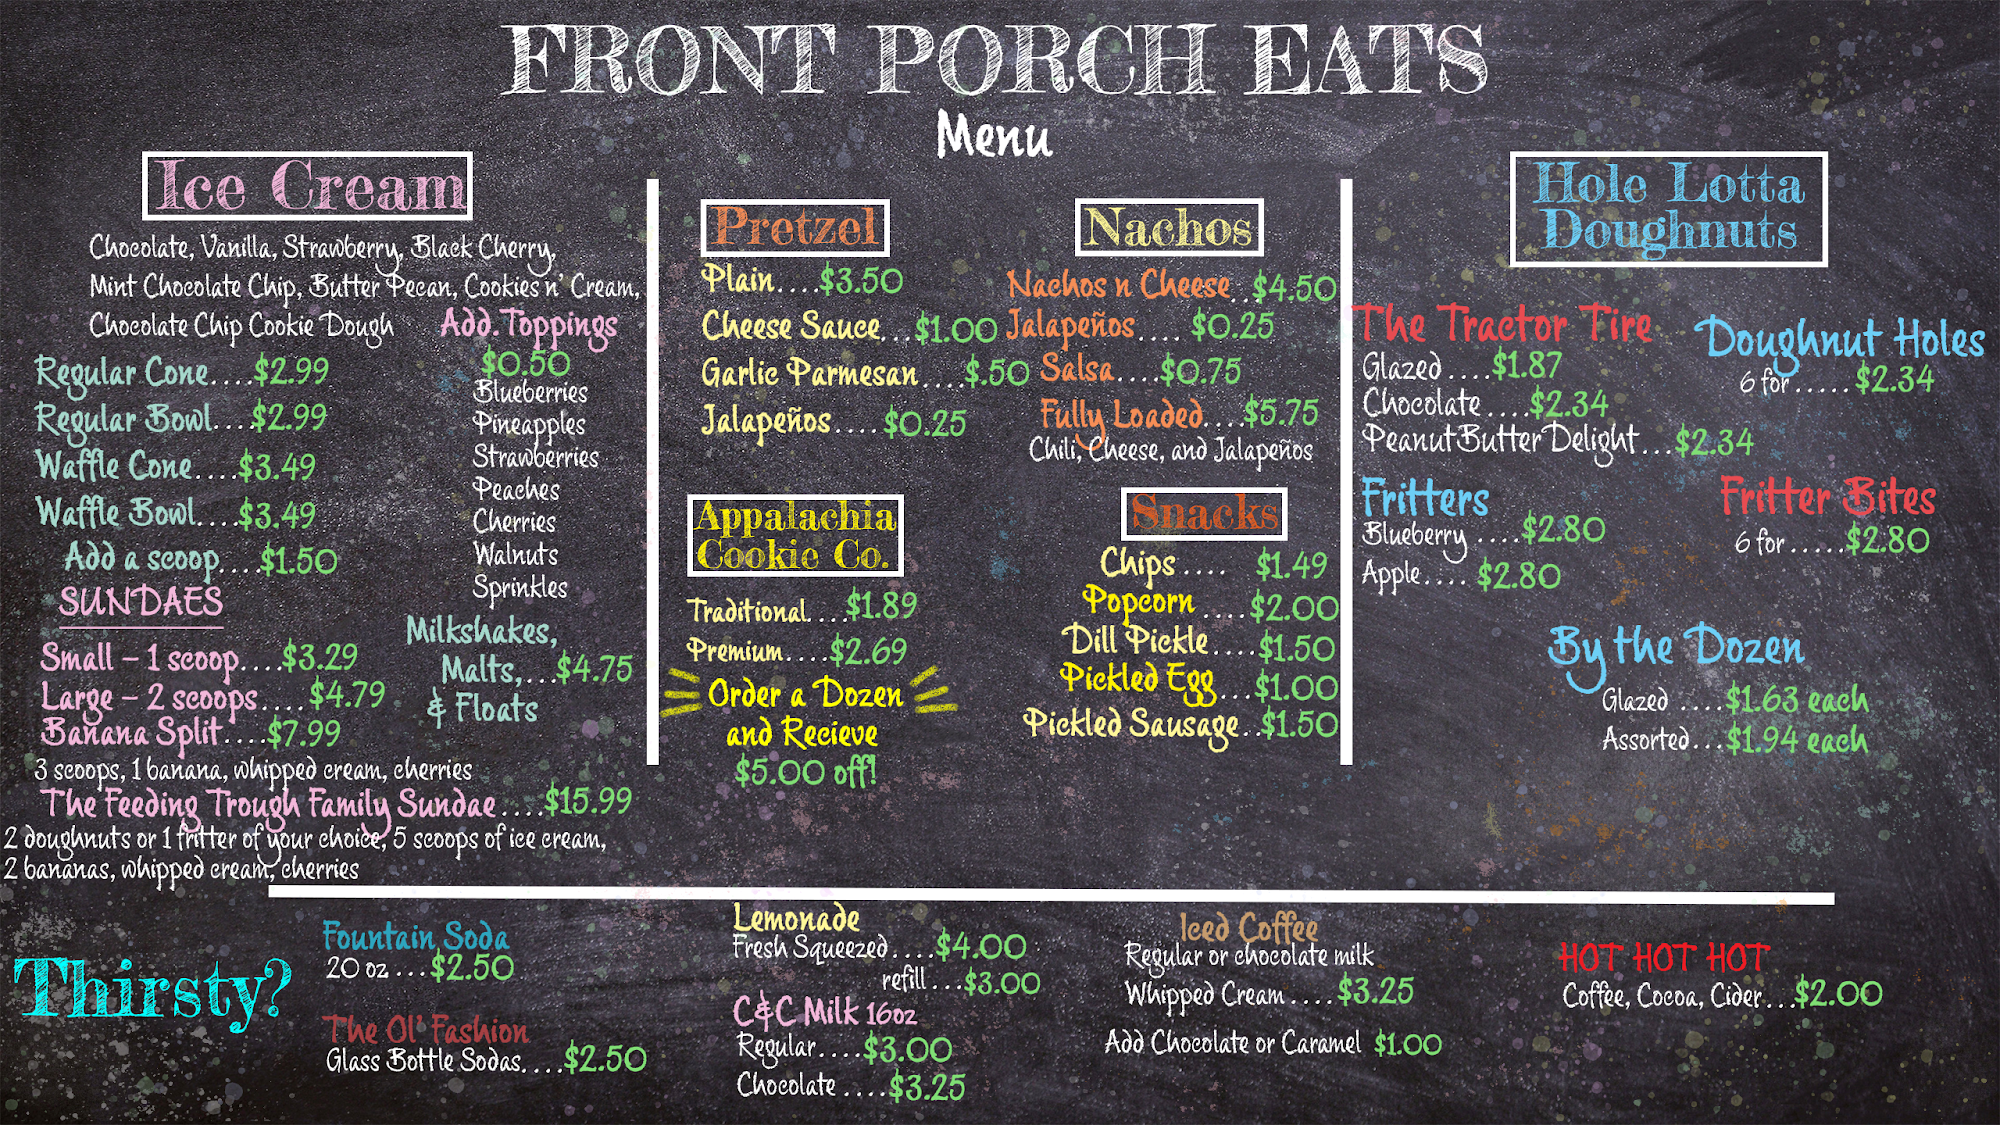 FRONT PORCH EATS
Menu
Ice Cream
Chocolate, Vanilla, Strawberry, Black Cherry,
Mint Chocolate Chip, Butter Pecan, Cookies n' Cream,
Chocolate Chip Cookie Dough
Regular Cone....$2.99
Regular Bowl....$2.99
Waffle Cone....$3.49
Waffle Bowl....$3.49
Add a scoop....$1.50
Add.Toppings
$0.50
Blueberries
Pineapples
Strawberries
Peaches
Cherries
Walnuts
Sprinkles
SUNDAES
Small – 1 scoop....$3.29
Large – 2 scoops....$4.79
Banana Split....$7.99
3 scoops, 1 banana, whipped cream, cherries
Milkshakes,
Malts,...$4.75
& Floats
The Feeding Trough Family Sundae....$15.99
2 doughnuts or 1 fritter of your choice, 5 scoops of ice cream,
2 bananas, whipped cream, cherries
Pretzel
Plain....$3.50
Cheese Sauce...$1.00
Garlic Parmesan....$.50
Jalapeños....$0.25
Nachos
Nachos n Cheese..$4.50
Jalapeños.... $0.25
Salsa....$0.75
Fully Loaded....$5.75
Chili, Cheese, and Jalapeños
Appalachia
Cookie Co.
Traditional....$1.89
Premium....$2.69
Order a Dozen
and Recieve
$5.00 off!
Snacks
Chips.... $1.49
Popcorn....$2.00
Dill Pickle....$1.50
Pickled Egg...$1.00
Pickled Sausage..$1.50
Hole Lotta
Doughnuts
The Tractor Tire
Glazed....$1.87
Chocolate....$2.34
Peanut Butter Delight...$2.34
Doughnut Holes
6 for.....$2.34
Fritters
Blueberry....$2.80
Apple.... $2.80
Fritter Bites
6 for.....$2.80
By the Dozen
Glazed ....$1.63 each
Assorted...$1.94 each
Thirsty?
Fountain Soda
20 oz...$2.50
The Ol' Fashion
Glass Bottle Sodas....$2.50
Lemonade
Fresh Squeezed....$4.00
refill...$3.00
C&C Milk 16oz
Regular....$3.00
Chocolate....$3.25
Iced Coffee
Regular or chocolate milk
Whipped Cream....$3.25
Add Chocolate or Caramel $1.00
HOT HOT HOT
Coffee, Cocoa, Cider...$2.00